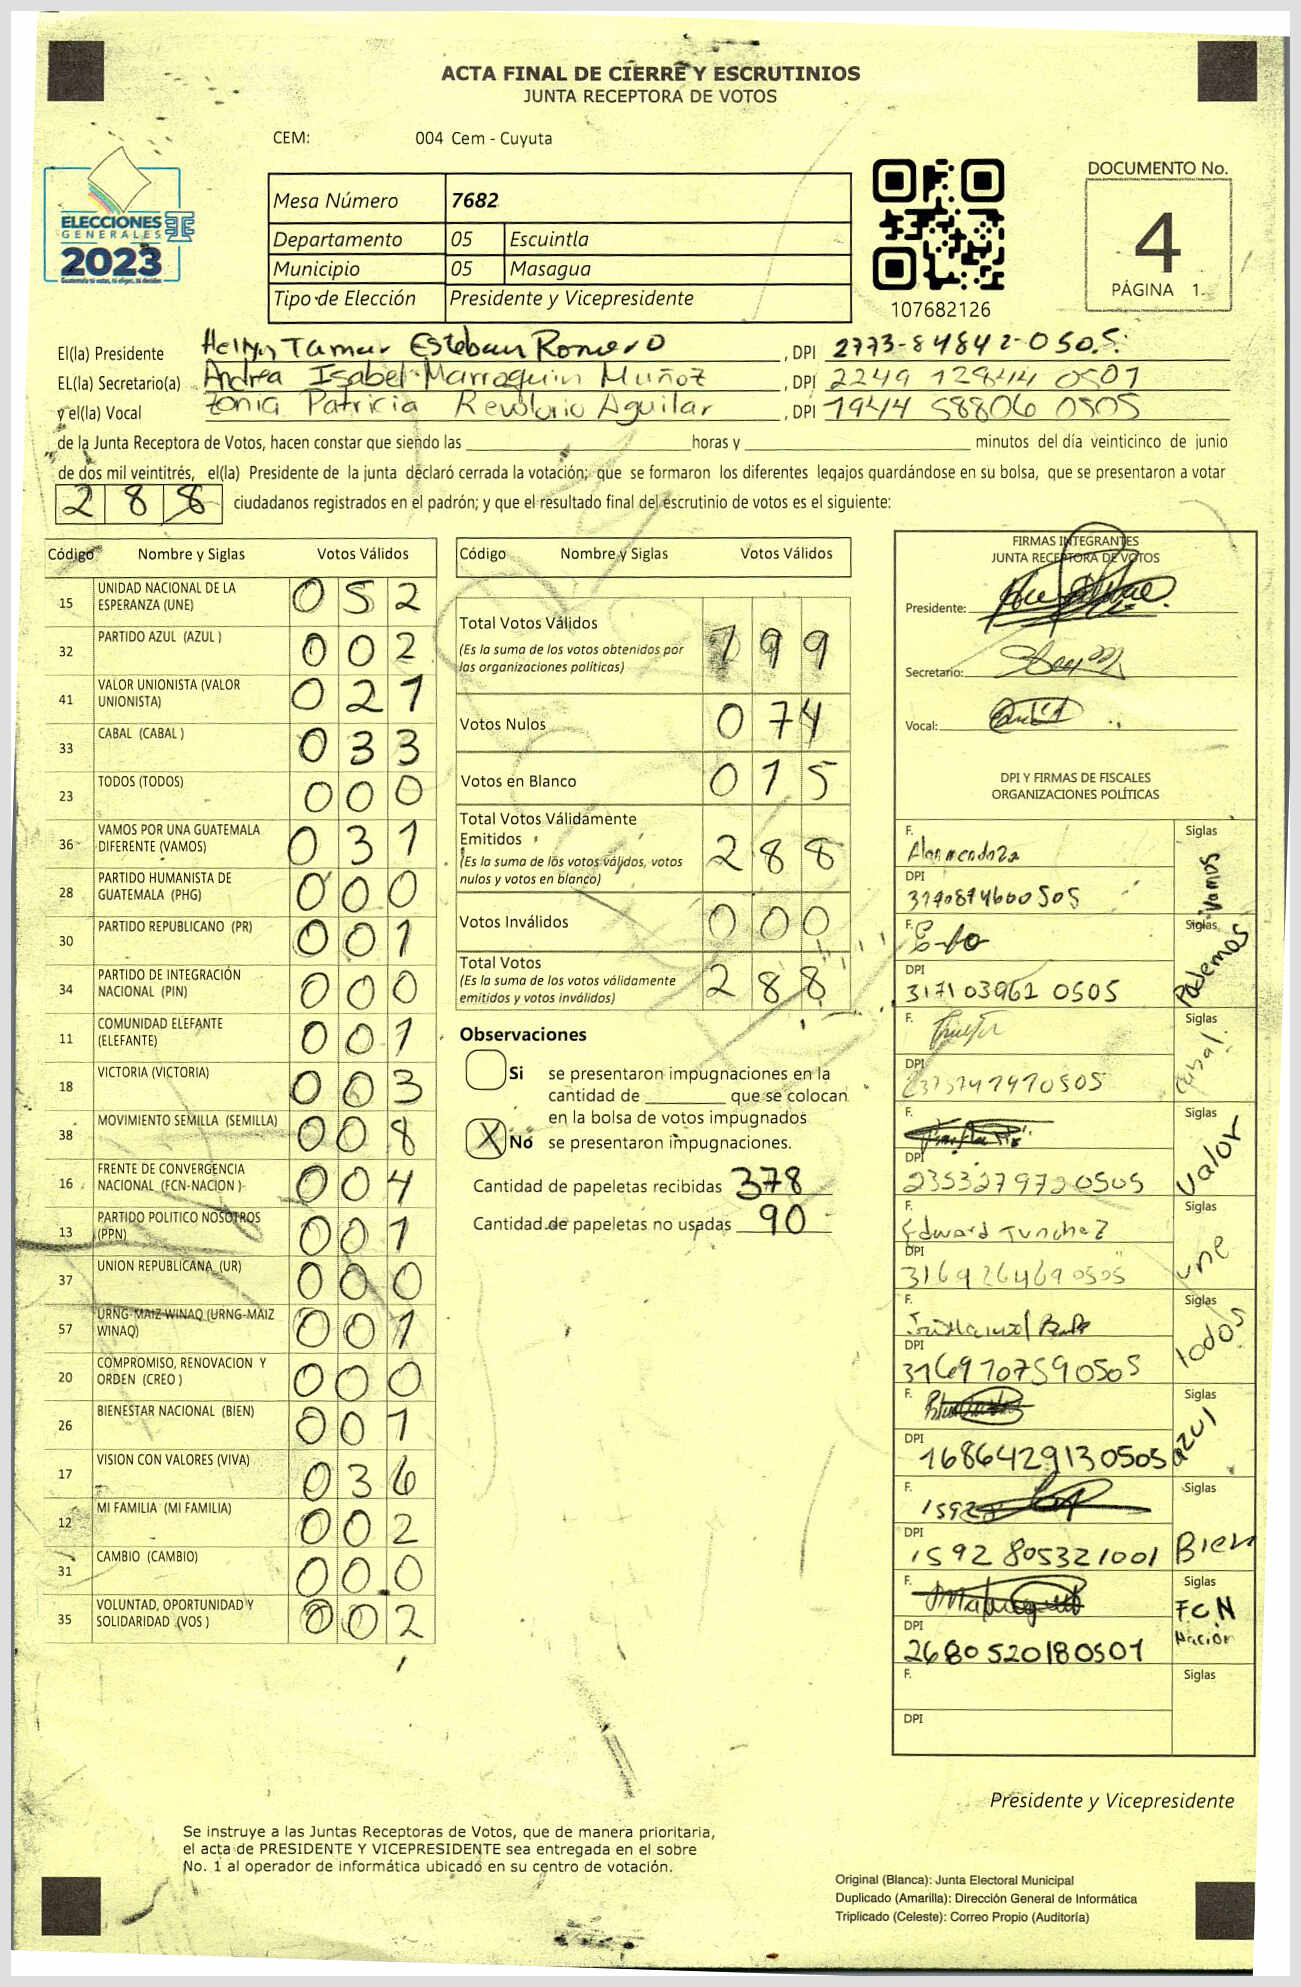 ACTA FINAL DE CIERRE Y ESCRUTINIOS
JUNTA RECEPTORA DE VOTOS
CEM: 004 Cem - Cuyuta
ELECCIONES
GENERALES
2023
Mesa Número 7682
Departamento 05 Escuintla
Municipio 05 Masagua
Tipo de Elección Presidente y Vicepresidente
107682126
DOCUMENTO No.
4
PÁGINA 1
El(la) Presidente Hellyn Tamar Esteban Romero , DPI 2773-84842-0505
EL(la) Secretario(a) Andrea Isabel Marroquin Muñoz , DPI 2249 12844 0501
y el(la) Vocal Zonia Patricia Revolorio Aguilar , DPI 1944 58806 0505
de la Junta Receptora de Votos, hacen constar que siendo las horas y minutos del día veinticinco de junio
de dos mil veintitrés, el(la) Presidente de la junta declaró cerrada la votación; que se formaron los diferentes legajos guardándose en su bolsa, que se presentaron a votar
288 ciudadanos registrados en el padrón; y que el resultado final del escrutinio de votos es el siguiente:
Código Nombre y Siglas Votos Válidos
15 UNIDAD NACIONAL DE LA ESPERANZA (UNE) 052
32 PARTIDO AZUL (AZUL ) 002
41 VALOR UNIONISTA (VALOR UNIONISTA) 021
33 CABAL (CABAL ) 033
23 TODOS (TODOS) 000
36 VAMOS POR UNA GUATEMALA DIFERENTE (VAMOS) 031
28 PARTIDO HUMANISTA DE GUATEMALA (PHG) 000
30 PARTIDO REPUBLICANO (PR) 001
34 PARTIDO DE INTEGRACIÓN NACIONAL (PIN) 000
11 COMUNIDAD ELEFANTE (ELEFANTE) 001
18 VICTORIA (VICTORIA) 003
38 MOVIMIENTO SEMILLA (SEMILLA) 008
16 FRENTE DE CONVERGENCIA NACIONAL (FCN-NACION ) 004
13 PARTIDO POLITICO NOSOTROS (PPN) 001
37 UNION REPUBLICANA (UR) 000
57 URNG-MAIZ WINAQ (URNG-MAIZ WINAQ) 001
20 COMPROMISO, RENOVACION Y ORDEN (CREO ) 000
26 BIENESTAR NACIONAL (BIEN) 001
17 VISION CON VALORES (VIVA) 036
12 MI FAMILIA (MI FAMILIA) 002
31 CAMBIO (CAMBIO) 000
35 VOLUNTAD, OPORTUNIDAD Y SOLIDARIDAD (VOS ) 002
Código Nombre y Siglas Votos Válidos
Total Votos Válidos 199
(Es la suma de los votos obtenidos por
las organizaciones políticas)
Votos Nulos 074
Votos en Blanco 015
Total Votos Válidamente
Emitidos 288
(Es la suma de los votos válidos, votos
nulos y votos en blanco)
Votos Inválidos 000
Total Votos 288
(Es la suma de los votos válidamente
emitidos y votos inválidos)
Observaciones
Si se presentaron impugnaciones en la
cantidad de que se colocan
en la bolsa de votos impugnados
X No se presentaron impugnaciones.
Cantidad de papeletas recibidas 378
Cantidad de papeletas no usadas 90
FIRMAS INTEGRANTES
JUNTA RECEPTORA DE VOTOS
Presidente:
Secretario:
Vocal:
DPI Y FIRMAS DE FISCALES
ORGANIZACIONES POLÍTICAS
F. Siglas Vamos
DPI
3190874600505
F. Siglas Podemos
DPI
317103961 0505
F. Siglas Cabal
DPI
F. Siglas Valor
DPI
2353279720505
F. Edward Tunchez Siglas Une
DPI
3169264690505
F. Siglas Todos
DPI
3169707590505
F. Siglas azul
DPI
1686429130505
F. Siglas Bien
DPI
1592805321001
F. Siglas FCN Nación
DPI
2680520180501
F. Siglas
DPI
Presidente y Vicepresidente
Se instruye a las Juntas Receptoras de Votos, que de manera prioritaria,
el acta de PRESIDENTE Y VICEPRESIDENTE sea entregada en el sobre
No. 1 al operador de informática ubicado en su centro de votación.
Original (Blanca): Junta Electoral Municipal
Duplicado (Amarilla): Dirección General de Informática
Triplicado (Celeste): Correo Propio (Auditoría)